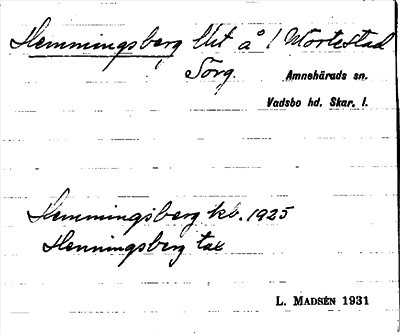 Hemmingsberg Utt å / Mortestad
Torg. Amnehärads sn.
Vadsbo hd. Skar. l.
Hemmingsberg kb. 1925
Henningsberg tax
L. MADSÉN 1931